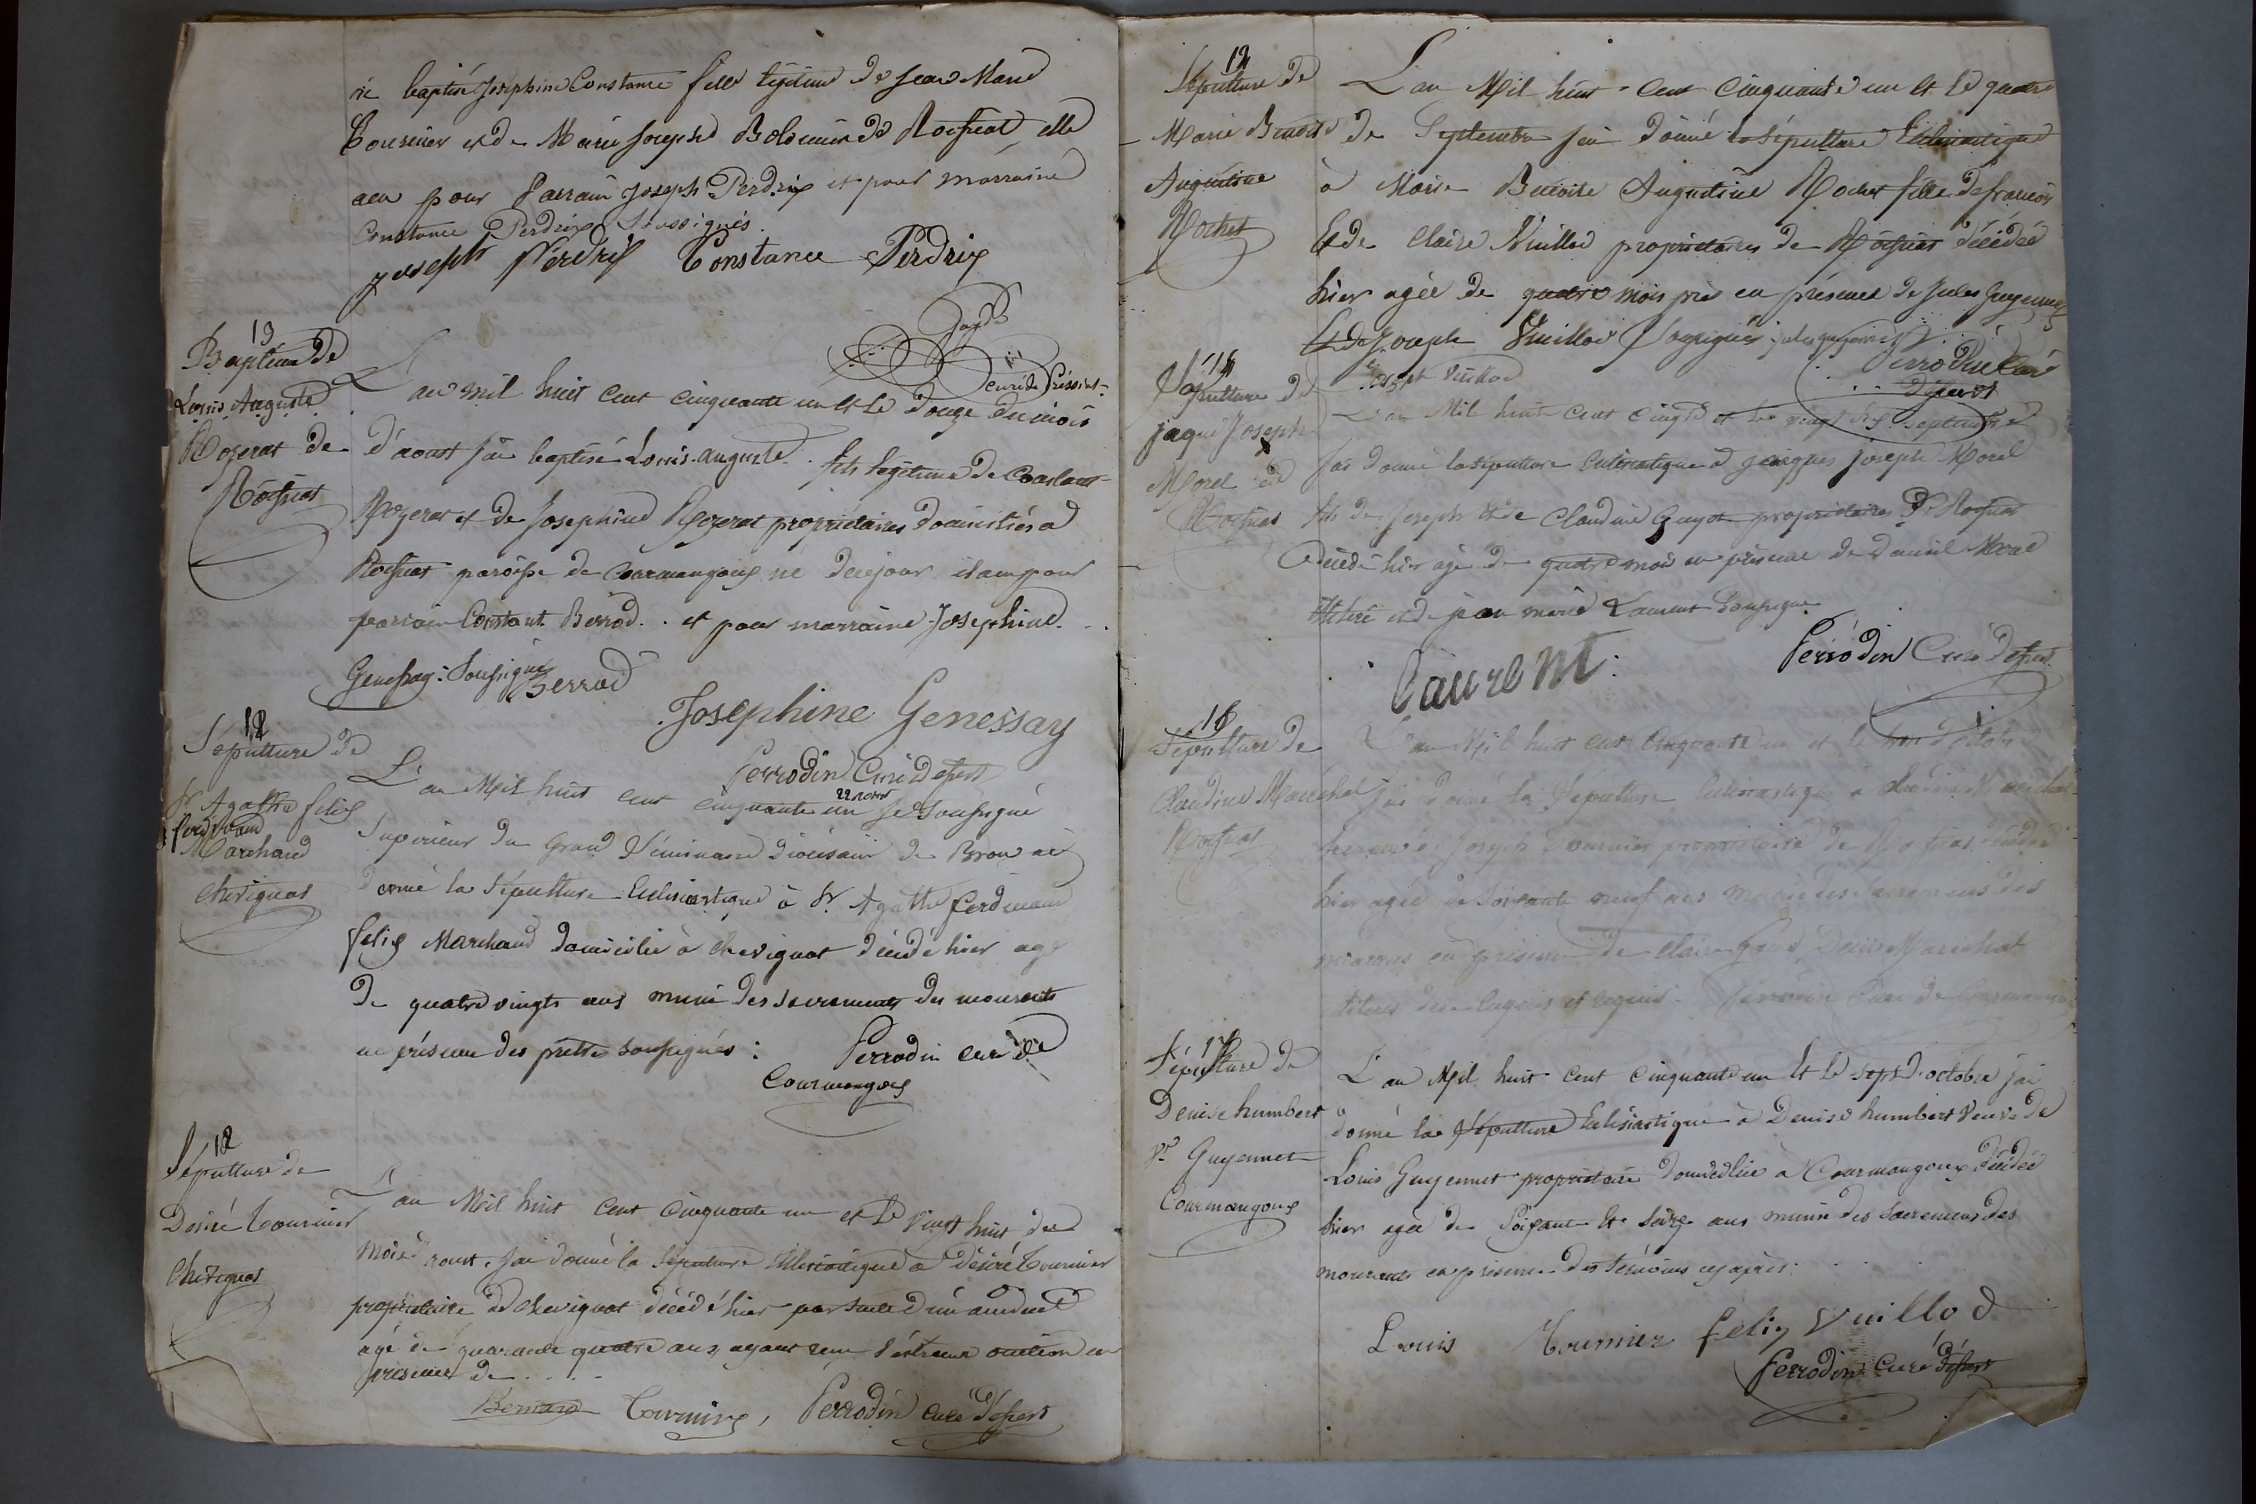 né baptisé Joséphine Constance fille légitime de Jean Marie
Tournier et de Marie Josephe Bolomier de Rosseat elle
a eu pour Parrain Joseph Perdrix et pour marraine
Constance Perdrix Soussignés.
joseph Perdrix Constance Perdrix
curé de Pressiat
13
Baptême de
Louis Auguste
Rozerat de
Roissiat
L'an mil huit cent cinquante un et le douze du mois
d'aoust j'ai baptisé Louis auguste fils légitime de Constant
Rozerat et de Josephine Rozerat propriétaires domiciliés à
Roissiat paroisse de Courmangoux né de ce jour il a eu pour
parrain Constant Berrod .. et pour marraine Josephine
Genessay : Soussignés
Berrod
Josephine Genessay
Perrodin Curé Desservt
12
Sépulture de
Sr Agathe felix
ferdinand
Marchand
Chevignat
L'an Mil huit cent cinquante un 22 Je Soussigné
Supérieur du Grand Séminaire diocésain de Brou ai
donné la Sépulture Eclésiastique à Sr Agathe ferdinand
felix Marchand domicilié à chevignat décédé hier agé
de quatre vingts ans muni des sacrements des mourants
en présence des prêtres soussignés :
Perrodin curé de
Courmangoux
12
Sépulture de
Désiré Tournier
Chevignat
L'an Mil huit Cent Cinquante un et le Vingt huit du
mois d'aoust, j'ai donné la Sépulture Eclésiastique à Désiré Tournier
propriétaire de Chevignat décédé hier par suite d'un accident
agé de quarante quatre ans, ayant reçu l'extrême onction en
présence de ....
Bernard Tournier, Perrodin curé Desservt
12
Sépulture de
Marie Benoite
Augustine
Rochet
L'an Mil huit - Cent Cinquante un et le quatre
de Septembre j'ai donné la Sépulture Eclésiastique
à Marie Benoite Augustine Rochet fille de françois
Et de Claire Vuillod propriétaires de Roissiat décédée
hier agée de quatre mois près en présence de Jules Guyennet
Et de Joseph Vuillod Soussignés jules guyennet
Joseph Vuillod
Perrodin Curé
Desservt
Sépulture de
jaque Joseph
Morel de
Roissiat
L'an Mil huit cent cinqte et le vingt septembre
j'ai donné la sépulture Eclésiastique à jacques joseph Morel
fils de Joseph et de Claudine Guyot propriétaires de Roissiat
décédé hier agé de quatre mois en présence de Daniel Morel
illitéré et de jean marie Laurent Soussigné
Laurent
Perrodin Curé Desservt
Sépulture de
Claudine Maréchal
Roissiat
L'an Mil huit cent Cinquante un et le d'octobre
j'ai donné la Sépulture Eclésiastique à Claudine Maréchal
de Joseph Tournier propriétaire de Roissiat décédée
hier agée de soixante neuf ans munie des Sacremens des
mourans en présence de Claire Denis Maréchal
illitérés de ce enquis et requis. Perrodin Curé de Courmangoux
Sépulture de
Denise humbert
Ve Guyennet
Courmangoux
L'an Mil huit cent cinquante un Et le sept d'octobre j'ai
donné la Sépulture Eclésiastique à Denise humbert Veuve de
Louis Guyennet propriétaire domiciliée à Courmangoux décédée
hier agée de Soixante Et Seize ans munie des Sacremens des
mourants en présence des témoins cy après.
Louis Tournier felix Vuillod
Perrodin Curé Desservt